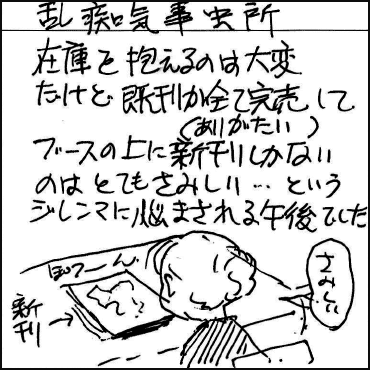 乱痴気事虫所
在庫を抱えるのは大変
だけど既刊が全て完売して
(ありがたい)
ブースの上に新刊しかない
のはとてもさみしい…という
ジレンマに悩まされる午後でした
ぽつーん
新刊→
さみしい